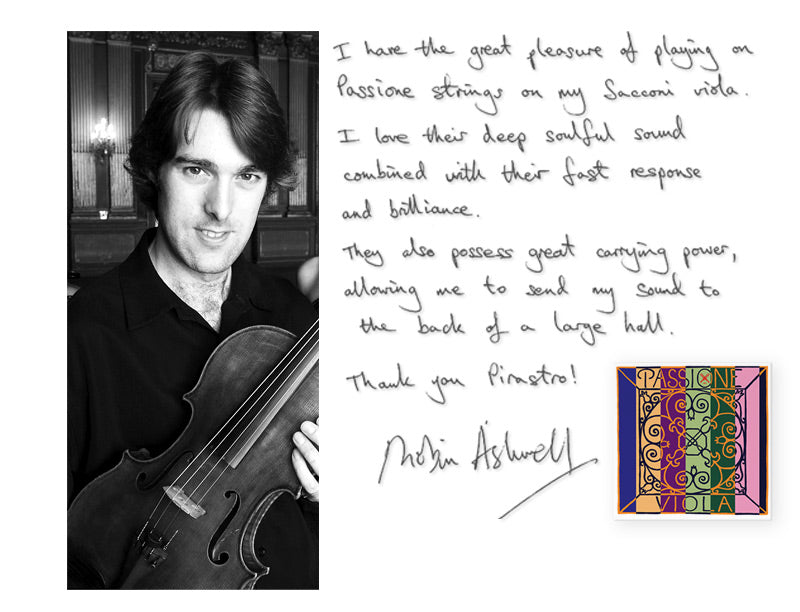 I have the great pleasure of playing on
Passione strings on my Sacconi viola.
I love their deep soulful sound
combined with their fast response
and brilliance.
They also possess great carrying power,
allowing me to send my sound to
the back of a large hall.
Thank you Pirastro!
Robin Ashwell
PASSIONE
VIOLA